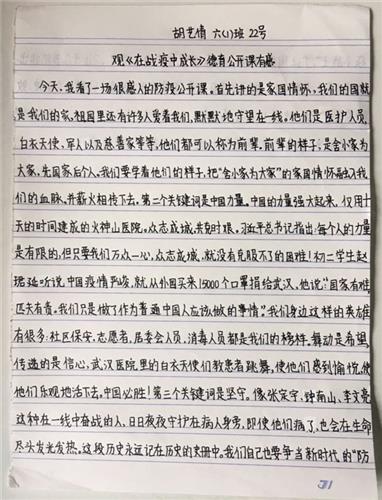 胡艺倩 六(1)班 22号
观《在战疫中成长》德育公开课有感
今天,我看了一场很感人的防疫公开课。首先讲的是家国情怀,我们的国就
是我们的家,祖国还有许多人爱着我们,默默地守望在一线。他们是医护人员,
白衣天使,军人以及慈善家等等,他们都可以称为前辈。前辈的样子,是舍小家为
大家,先国家后个人,我们要学着他们的样子,把“舍小家为大家”的家国情怀融入我
们的血脉,并薪火相传下去。第二个关键词是中力量。中国的力量强大起来,仅用十
天的时间建成的火神山医院,众志成城,共克时艰。习近平总书记指出:每个人的力量
是有限的,但只要我们万众一心,众志成城,就没有克服不了的困难!初二学生赵
珺延听说中国疫情严峻,就从外国买来15000个口罩捐给武汉,他说:“国家有难,
匹夫有责。我们只是做了作为普通中国人应该做的事情。”我们身边这样的英雄
有很多:社区保安,志愿者,居委会人员,消毒人员都是我们的榜样。舞动是希望,
传递的是信心,武汉医院里的白衣天使们教患者跳舞,使他们感到愉悦,使
他们乐观地活下去,中国必胜!第三个关键词是坚守。像张定宇,钟南山,李文亮
这种在一线中奋战的人,日日夜夜守护在病人身旁,即使他们病了,也会在生命
尽头发光发热。这段历史永远记在历史的史册中。我们自己也要争当新时代的“防